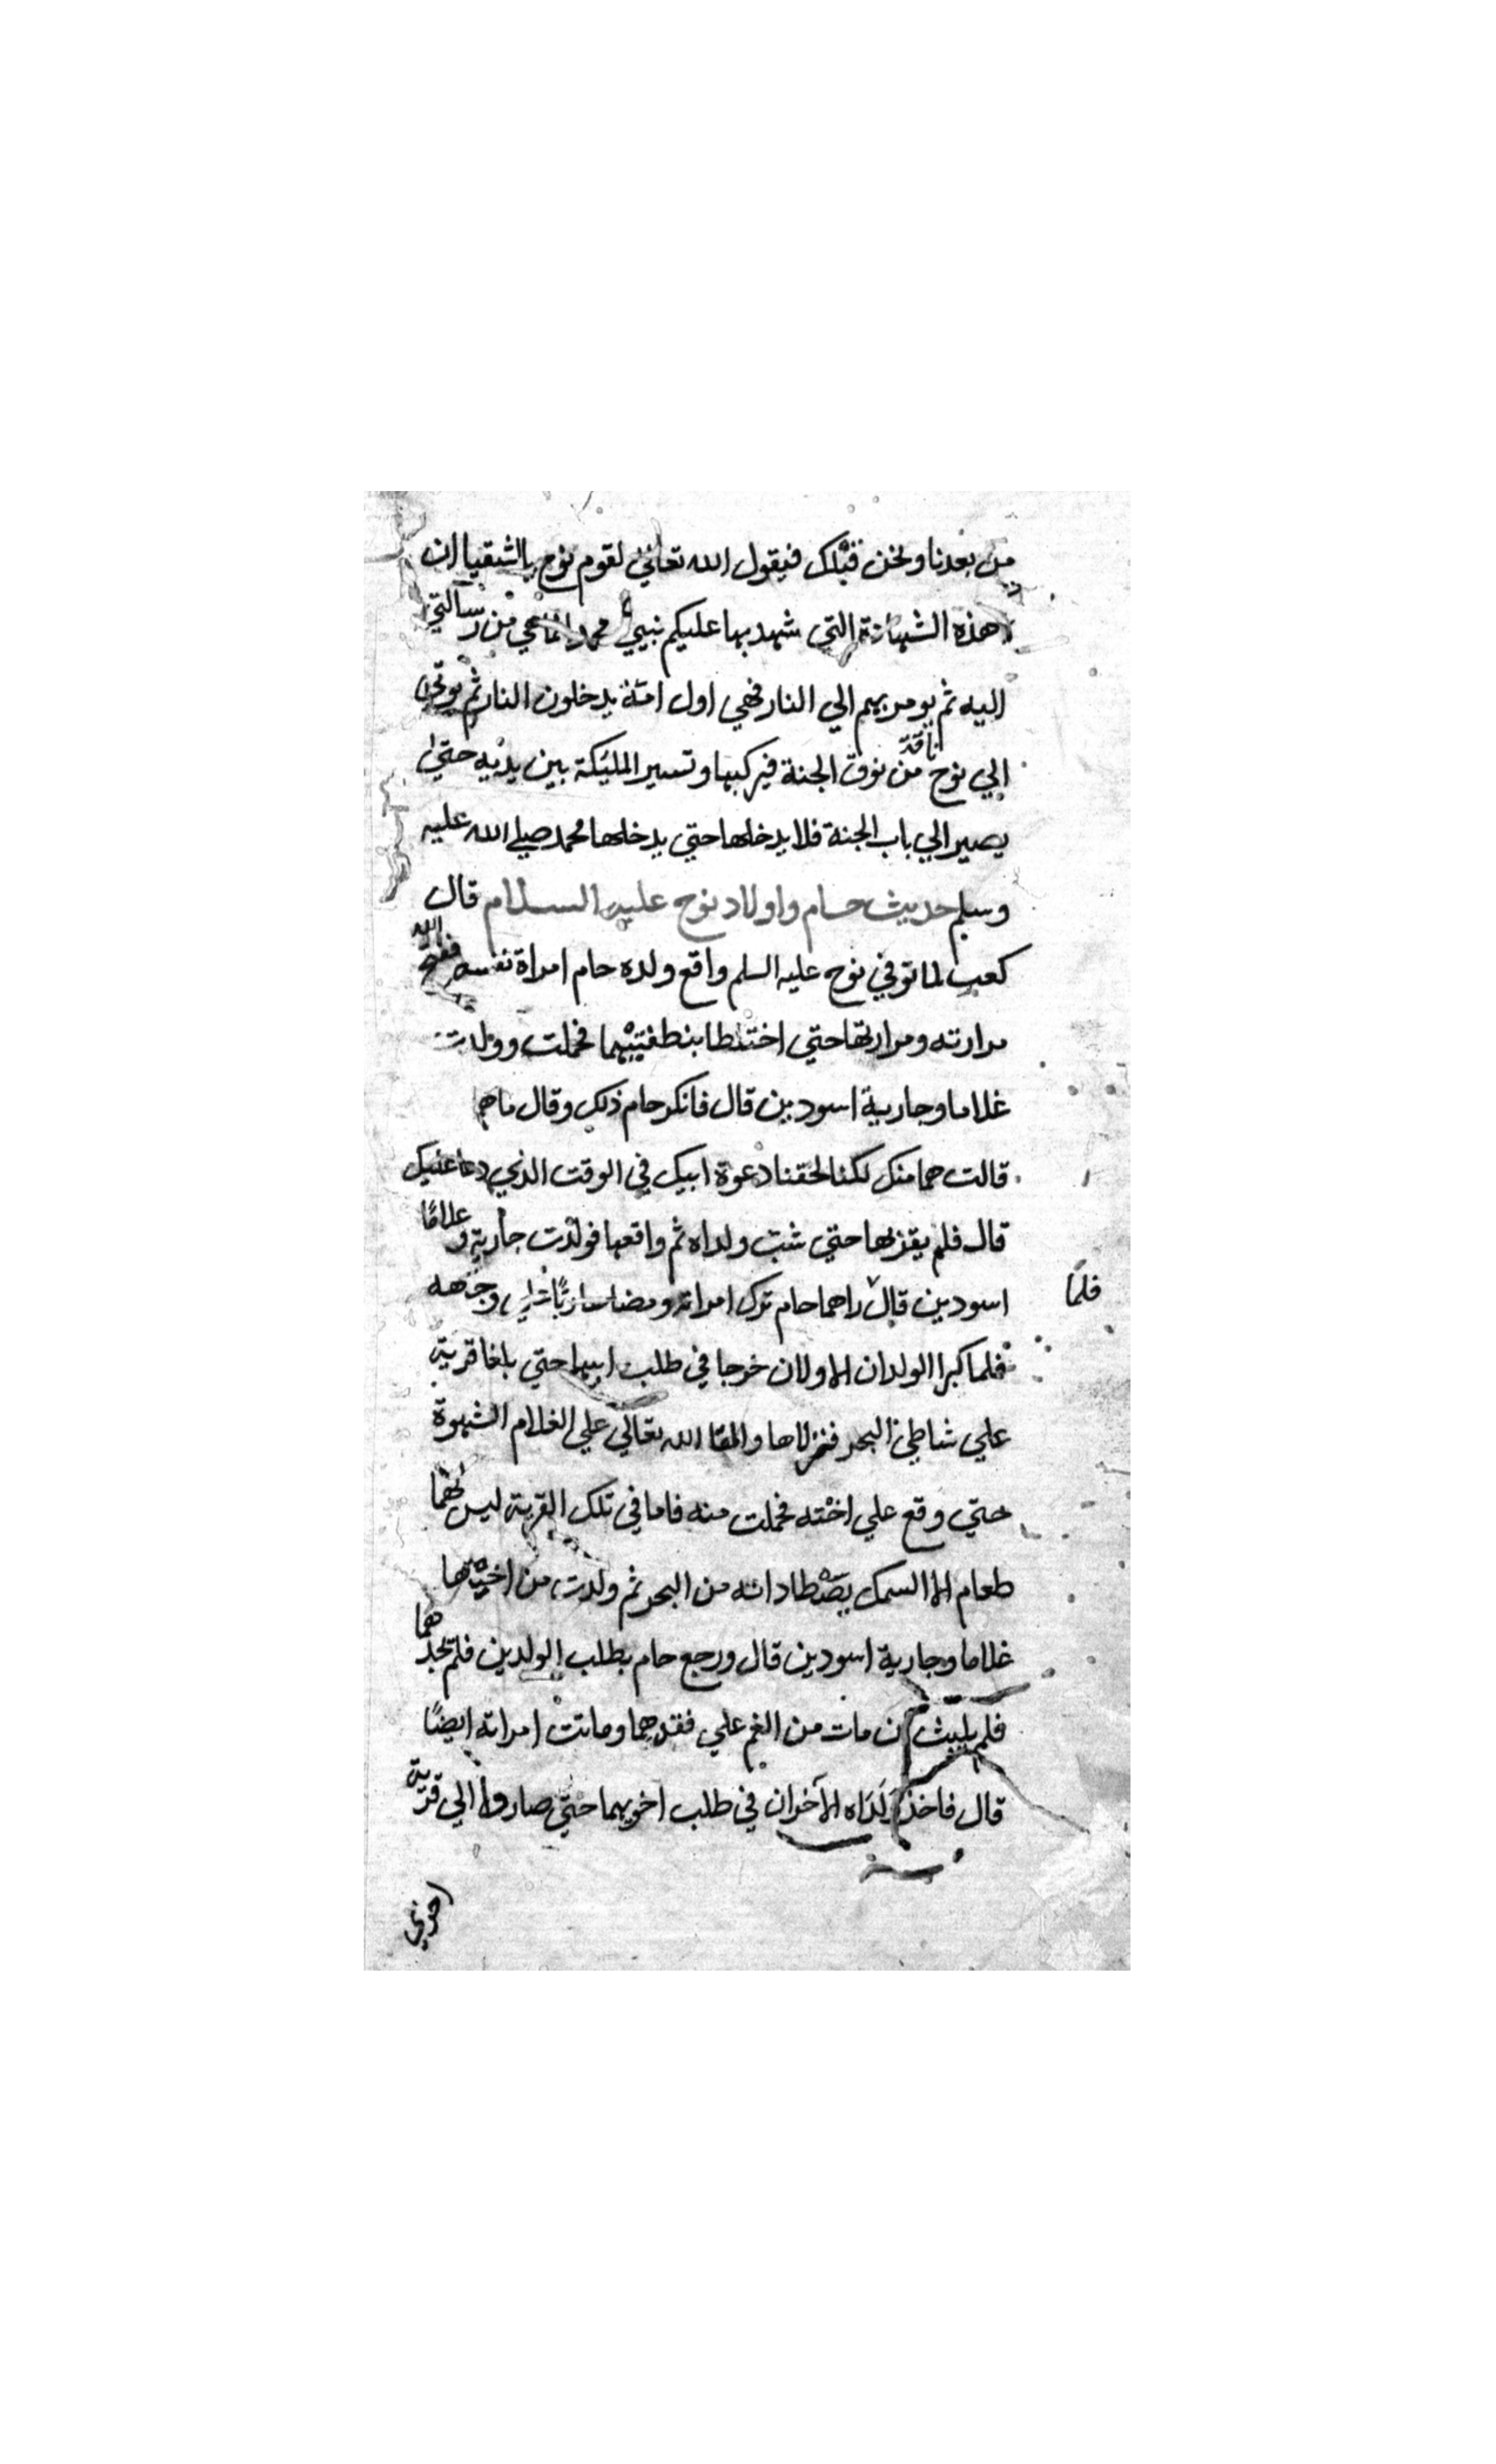 من بعدنا ونحن قبلك فيقول الله تعالي لقوم نوح يا اشقيا ان
هذه الشهادة التي شهد بها عليكم نبيي محمد من رسالتي
اليه ثم يومر بهم الي النار فهي اول امة يدخلون النار ثم يوتي
الي نوح ناقة من نوق الجنة فيركبها وتسير المليكة بين يديه حتي
يصير الي باب الجنة فلا يدخلها حتي يدخلها محمد صلي الله عليه
وسلم حديث حام واولاد نوح عليه السلام قال
كعب لما توفي نوح عليه السلم واقع ولده حام امراة نفسه ففتح الله
مرارته ومرارتها حتي اختلطا بنطفتيهما فحملت وولدت
غلاما وجارية اسودين قال فانكر حام ذلك وقال ما هما
قالت هما منك لكنا لحقنا دعوة ابيك في الوقت الذي دعا عليك
قال فلم يقربها حتي شب ولداه ثم واقعها فولدت جارية وغلامًا
اسودين قال فلمّا راهما حام ترك امراته ومضا هاربًا علي وجهه
فلما كبرا الولدان الاولان خرجا في طلب ابيهما حتي بلغا قرية
علي شاطي البحر فنزلاها والقا الله تعالي علي الغلام الشهوة
حتي وقع علي اخته فحملت منه فاما في تلك القرية ليس لهما
طعام الا السمك يصطادانه من البحر ثم ولدت من اخيها
غلاما وجارية اسودين قال ورجع حام بطلب الولدين فلم يجدهما
فلم يلبث ان مات من الغم علي فقدهما وماتت امراته ايضًا
قال فاخذ ولداه الآخران في طلب اخويهما حتي صاروا الي قرية
اخري